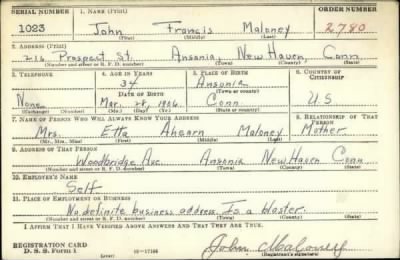 SERIAL NUMBER 1. NAME (Print) ORDER NUMBER
1023 John Francis Maloney 2780
(First) (Middle) (Last)
2. ADDRESS (Print)
216 Prospect St. Ansonia, New Haven, Conn.
(Number and street or R. F. D. number) (Town) (County) (State)
3. TELEPHONE 4. AGE IN YEARS 5. PLACE OF BIRTH 6. COUNTRY OF CITIZENSHIP
34 Ansonia
DATE OF BIRTH (Town or county)
None Mar. 28, 1906. Conn. U S
(Exchange) (Number) (Mo.) (Day) (Yr.) (State or country)
7. NAME OF PERSON WHO WILL ALWAYS KNOW YOUR ADDRESS 8. RELATIONSHIP OF THAT PERSON
Mrs. Etta Ahearn Maloney Mother
(Mr., Mrs., Miss) (First) (Middle) (Last)
9. ADDRESS OF THAT PERSON
Woodbridge Ave. Ansonia New Haven Conn
(Number and street or R. F. D. number) (Town) (County) (State)
10. EMPLOYER'S NAME
Self
11. PLACE OF EMPLOYMENT OR BUSINESS
No definite business address. Is a blaster.
(Number and street or R. F. D. number) (Town) (County) (State)
I AFFIRM THAT I HAVE VERIFIED ABOVE ANSWERS AND THAT THEY ARE TRUE.
REGISTRATION CARD
D. S. S. Form 1 16—17105 John Maloney
(Registrant's signature)